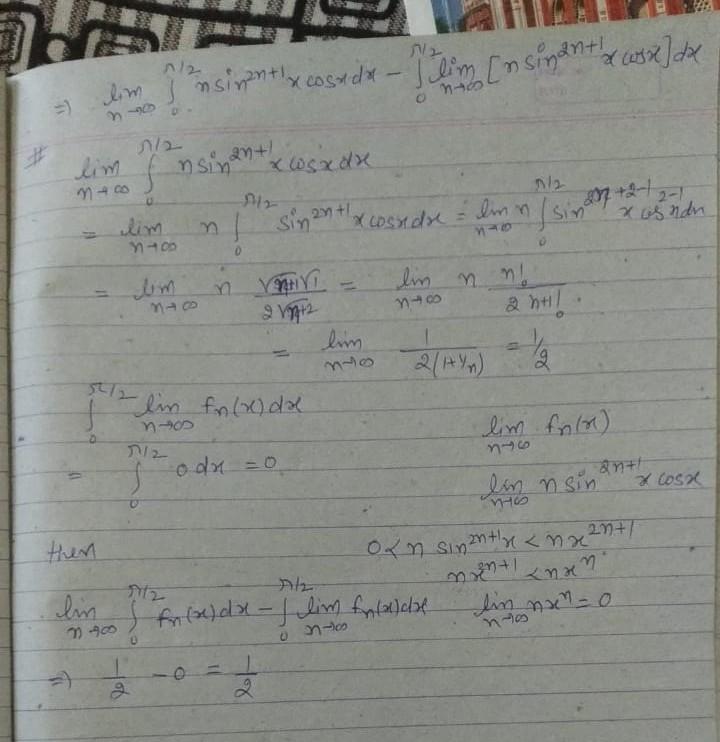 ⇒ lim n→∞ ∫₀^{π/2} n sin^{2n+1} x cosx dx − ∫₀^{π/2} lim n→∞ [n sin^{2n+1} x cosx] dx
# lim n→∞ ∫₀^{π/2} n sin^{2n+1} x cosx dx
= lim n→∞ n ∫₀^{π/2} sin^{2n+1} x cosx dx = lim n→∞ n ∫₀^{π/2} sin^{2n+2-1} x cos^{2-1} x dx
= lim n→∞ n √n+1 √1 / 2√n+2 = lim n→∞ n n! / 2 n+1!
= lim n→∞ 1 / 2(1+1/n) = 1/2
∫₀^{π/2} lim n→∞ fn(x) dx
lim n→∞ fn(x)
= ∫₀^{π/2} 0 dx = 0
lim n→∞ n sin^{2n+1} x cosx
then
0 < n sin^{2n+1} x < n x^{2n+1}
n x^{2n+1} < n x^n
lim n→∞ ∫₀^{π/2} fn(x) dx − ∫₀^{π/2} lim n→∞ fn(x) dx
lim n→∞ n x^n = 0
⇒ 1/2 − 0 = 1/2